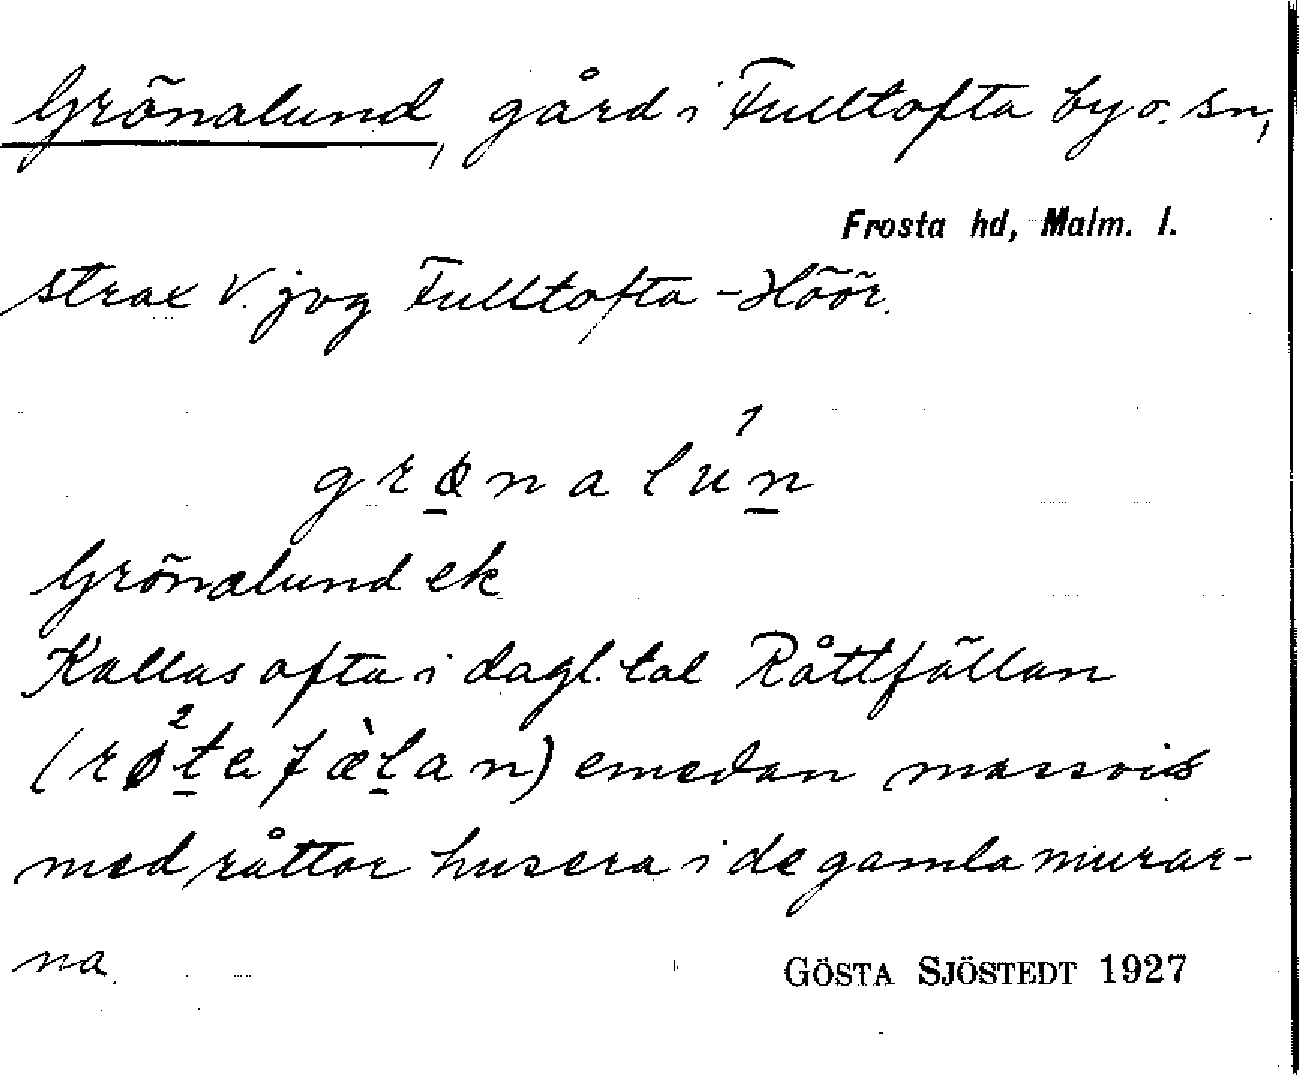 Grönalund, gård i Fulltofta by o. sn,
Frosta hd, Malm. l.
strax V. jvg Fulltofta - Höör.
grø̱nalúṉ
Grönalund ek
Kallas ofta i dagl. tal Råttfällan
(røṯefæ̀ḻan) emedan massvis
med råttor husera i de gamla murar-
na.
GÖSTA SJÖSTEDT 1927